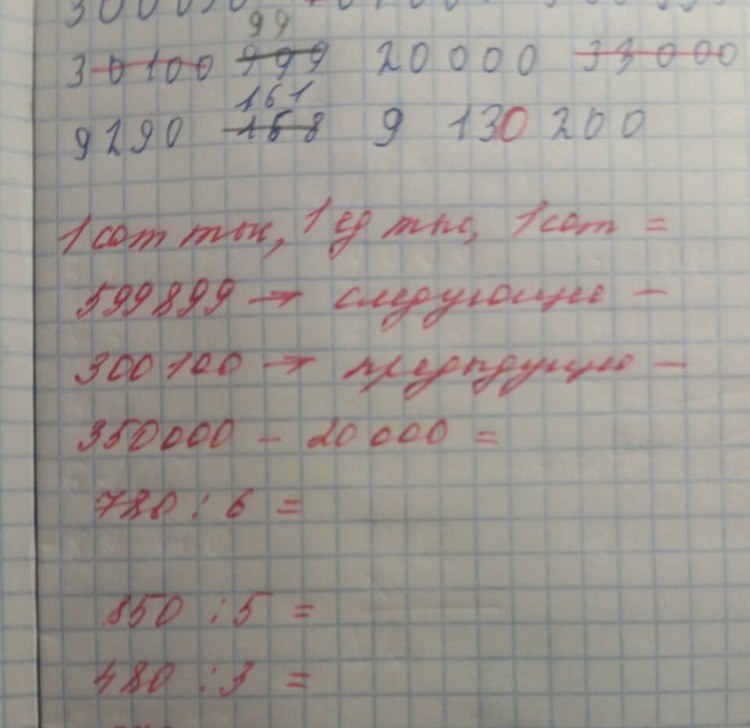 300090
99
30100 999 20000 33000
161
9290 168 9 130 200
1 сот тыс, 1 ед тыс, 1 сот =
599899 → следующее –
300100 → предыдущее –
350000 – 20000 =
780 : 6 =
850 : 5 =
480 : 3 =